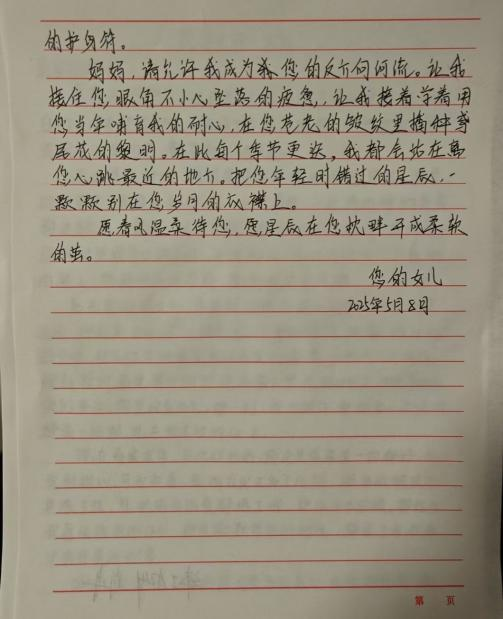 的护身符。
妈妈，请允许我成为您的反方向河流。让我
接住您眼角不小心坠落的疲惫，让我接着学着用
您当年哺育我的耐心，在您苍老的皱纹里播种
尾花的黎明。在此每个季节更迭，我都会站在离
您心跳最近的地方。把您年轻时错过的星辰，一
颗颗别在您岁月的衣襟上。
愿春风温柔待您，愿星辰在您枕畔开成柔软
的茧。
您的女儿
2025年5月8日
第 页